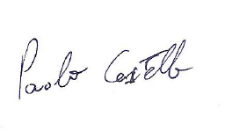 Paolo Castelli